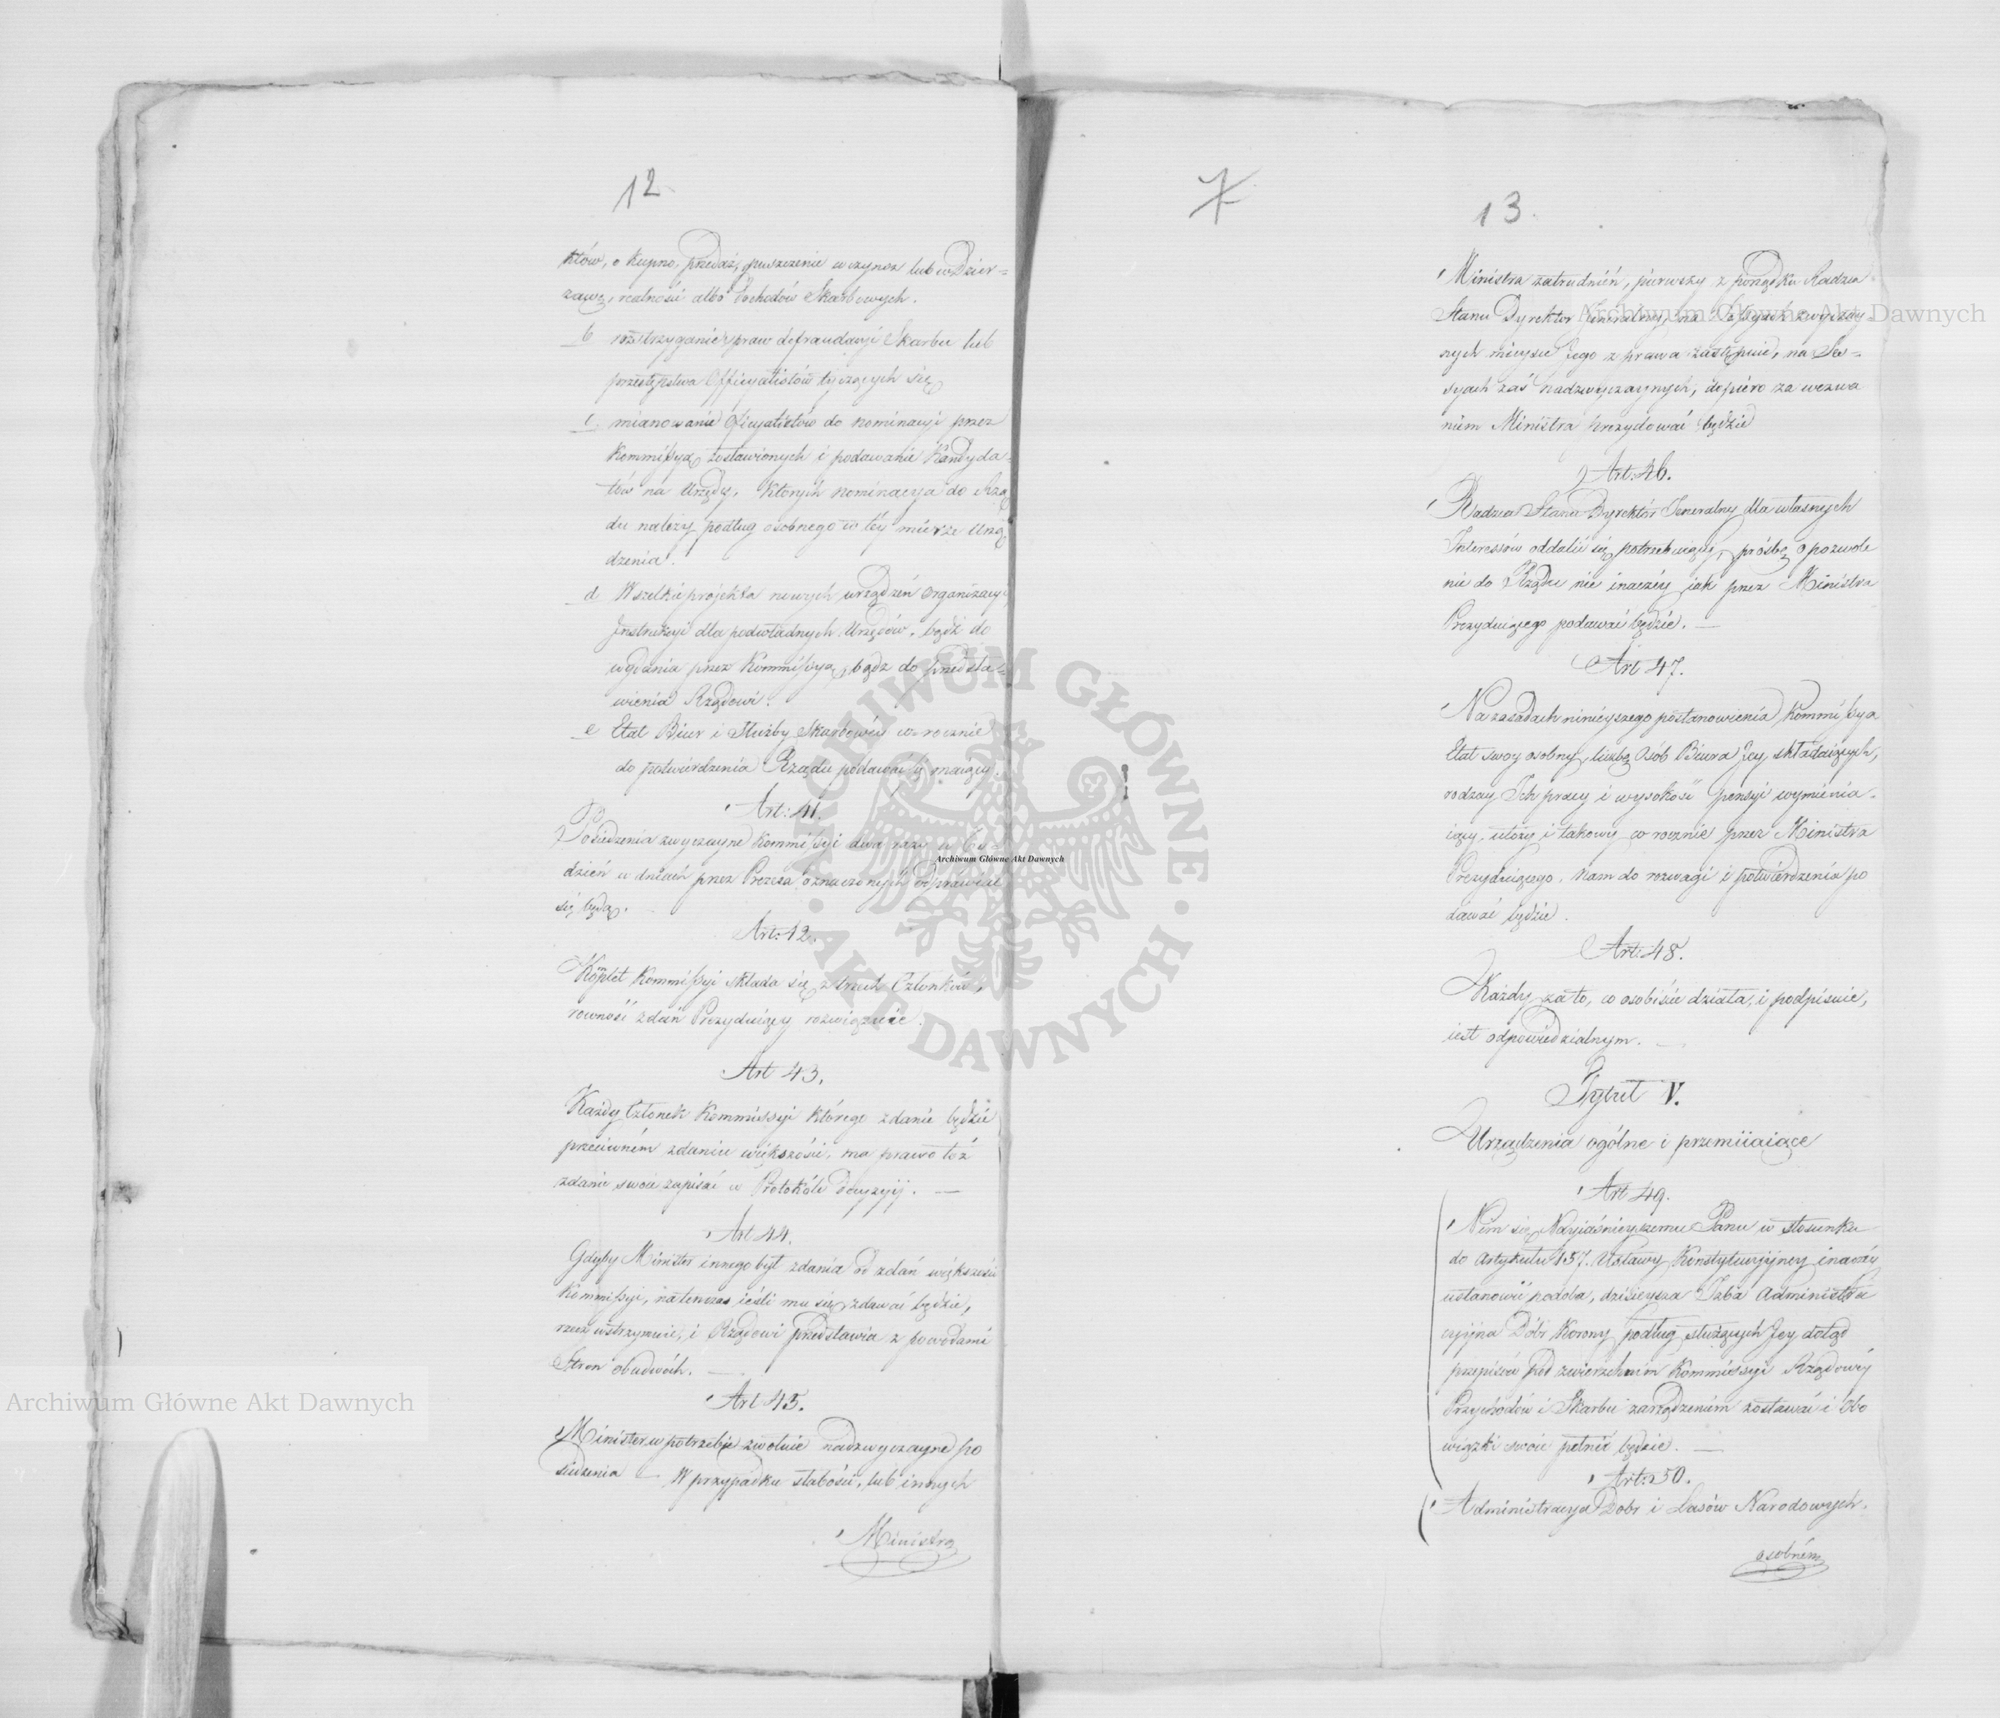 12
któw, o kupno, przedaż, opuszczenie w czynsz lub w Dzier=
żawę, realności albo Dochodów Skarbowych.
b rozstrzyganie spraw defraudacyi Skarbu lub
przestępstwa Officyalistów tyczących się
c mianowanie Oficyalistów do nominacyi przez
Kommissyą zostawionych i podawanie Kandyda-
tów na Urzędy, których nominacya do Rzą
du należy podług osobnego w tey mierze Urzą
dzenia.
d Wszelkie projekta nowych urządzeń organizacyi,
Instrukcyi dla podwładnych Urzędów, bądź do
wydania przez Kommissyą, bądz do przedsta-
wienia Rządowi.
e Etat Biur i Służby Skarbowéy corocznie
do potwierdzenia Rządu podawać się maiący.
Art: 41.
Posiedzenia zwyczayne Kommissyi dwa razy w ty-
dzień w dniach przez Prezesa oznaczonych odprawiać
się będą.
Art: 42.
Komplet Kommissyi składa się z trzech Członków,
równość zdań Prezyduiący rozwiązuie.
Art 43.
Każdy Członek Kommissyi którego zdanie będzie
przeciwném zdaniu większości, ma prawo toż
zdanie swoie zapisać w Protokóle Decyzyij. —
Art 44.
Gdyby Minister innego był zdania od zdań większości
Kommissyi, natenczas ieśli mu się zdawać będzie,
rzecz wstrzymuie, i Rządowi przedstawia z powodami
Stron obudwóch. —
Art 45.
Minister w potrzebie zwołuie nadzwyczayne po
siedzenia — W przypadku słabości, lub innych
Ministra
7
13.
Ministra zatrudnień, pierwszy z porządku Radzca
Stanu Dyrektor Jeneralny, na Sessyach zwyczay-
nych mieysce Jego z prawa zastępuie, na Ses=
syach zaś nadzwyczaynych, dopiéro za wezwa
niem Ministra prezydować będzie
Art: 46.
Radzca Stanu Dyrektor Jeneralny dla własnych
Interessów oddalić się potrzebuiący, prośbę o pozwole
nie do Rządu nie inaczéy jak przez Ministra
Prezyduiącego podawać będzie. —
Art 47.
Na zasadach ninieyszego postanowienia Kommissya
Etat swoy osobny, liczbę osób Biura Jey składaiących,
rodzay Ich pracy i wysokość pensyi wymienia-
iący, ułoży i takowy co rocznie przez Ministra
Prezyduiącego, nam do rozwagi i potwierdzenia po
dawać będzie.
Art: 48.
Każdy za to, co osobiście działa, i podpisuie,
iest odpowiedzialnym. —
Tytuł V.
Urządzenia ogólne i przemiiaiące
Art 49.
Nim się Nayiaśnieyszemu Panu w stosunku
do Artykułu 157. Ustawy Konstytucyjney inaczéy
ustanowić podoba, dzisieysza Izba Administra
cyjna Dóbr Korony podług służących Jey dotąd
przepisów pod zwierzchniém Kommissyi Rządowéy
Przychodów i Skarbu zarządzeniém zostawać i obo
wiązki swoie pełnić będzie. —
Art: 50.
Administracya Dobr i Lasów Narodowych.
osobném
Archiwum Główne Akt Dawnych
Archiwum Główne Akt Dawnych
Archiwum Główne Akt Dawnych
ARCHIWUM GŁÓWNE • AKT DAWNYCH •